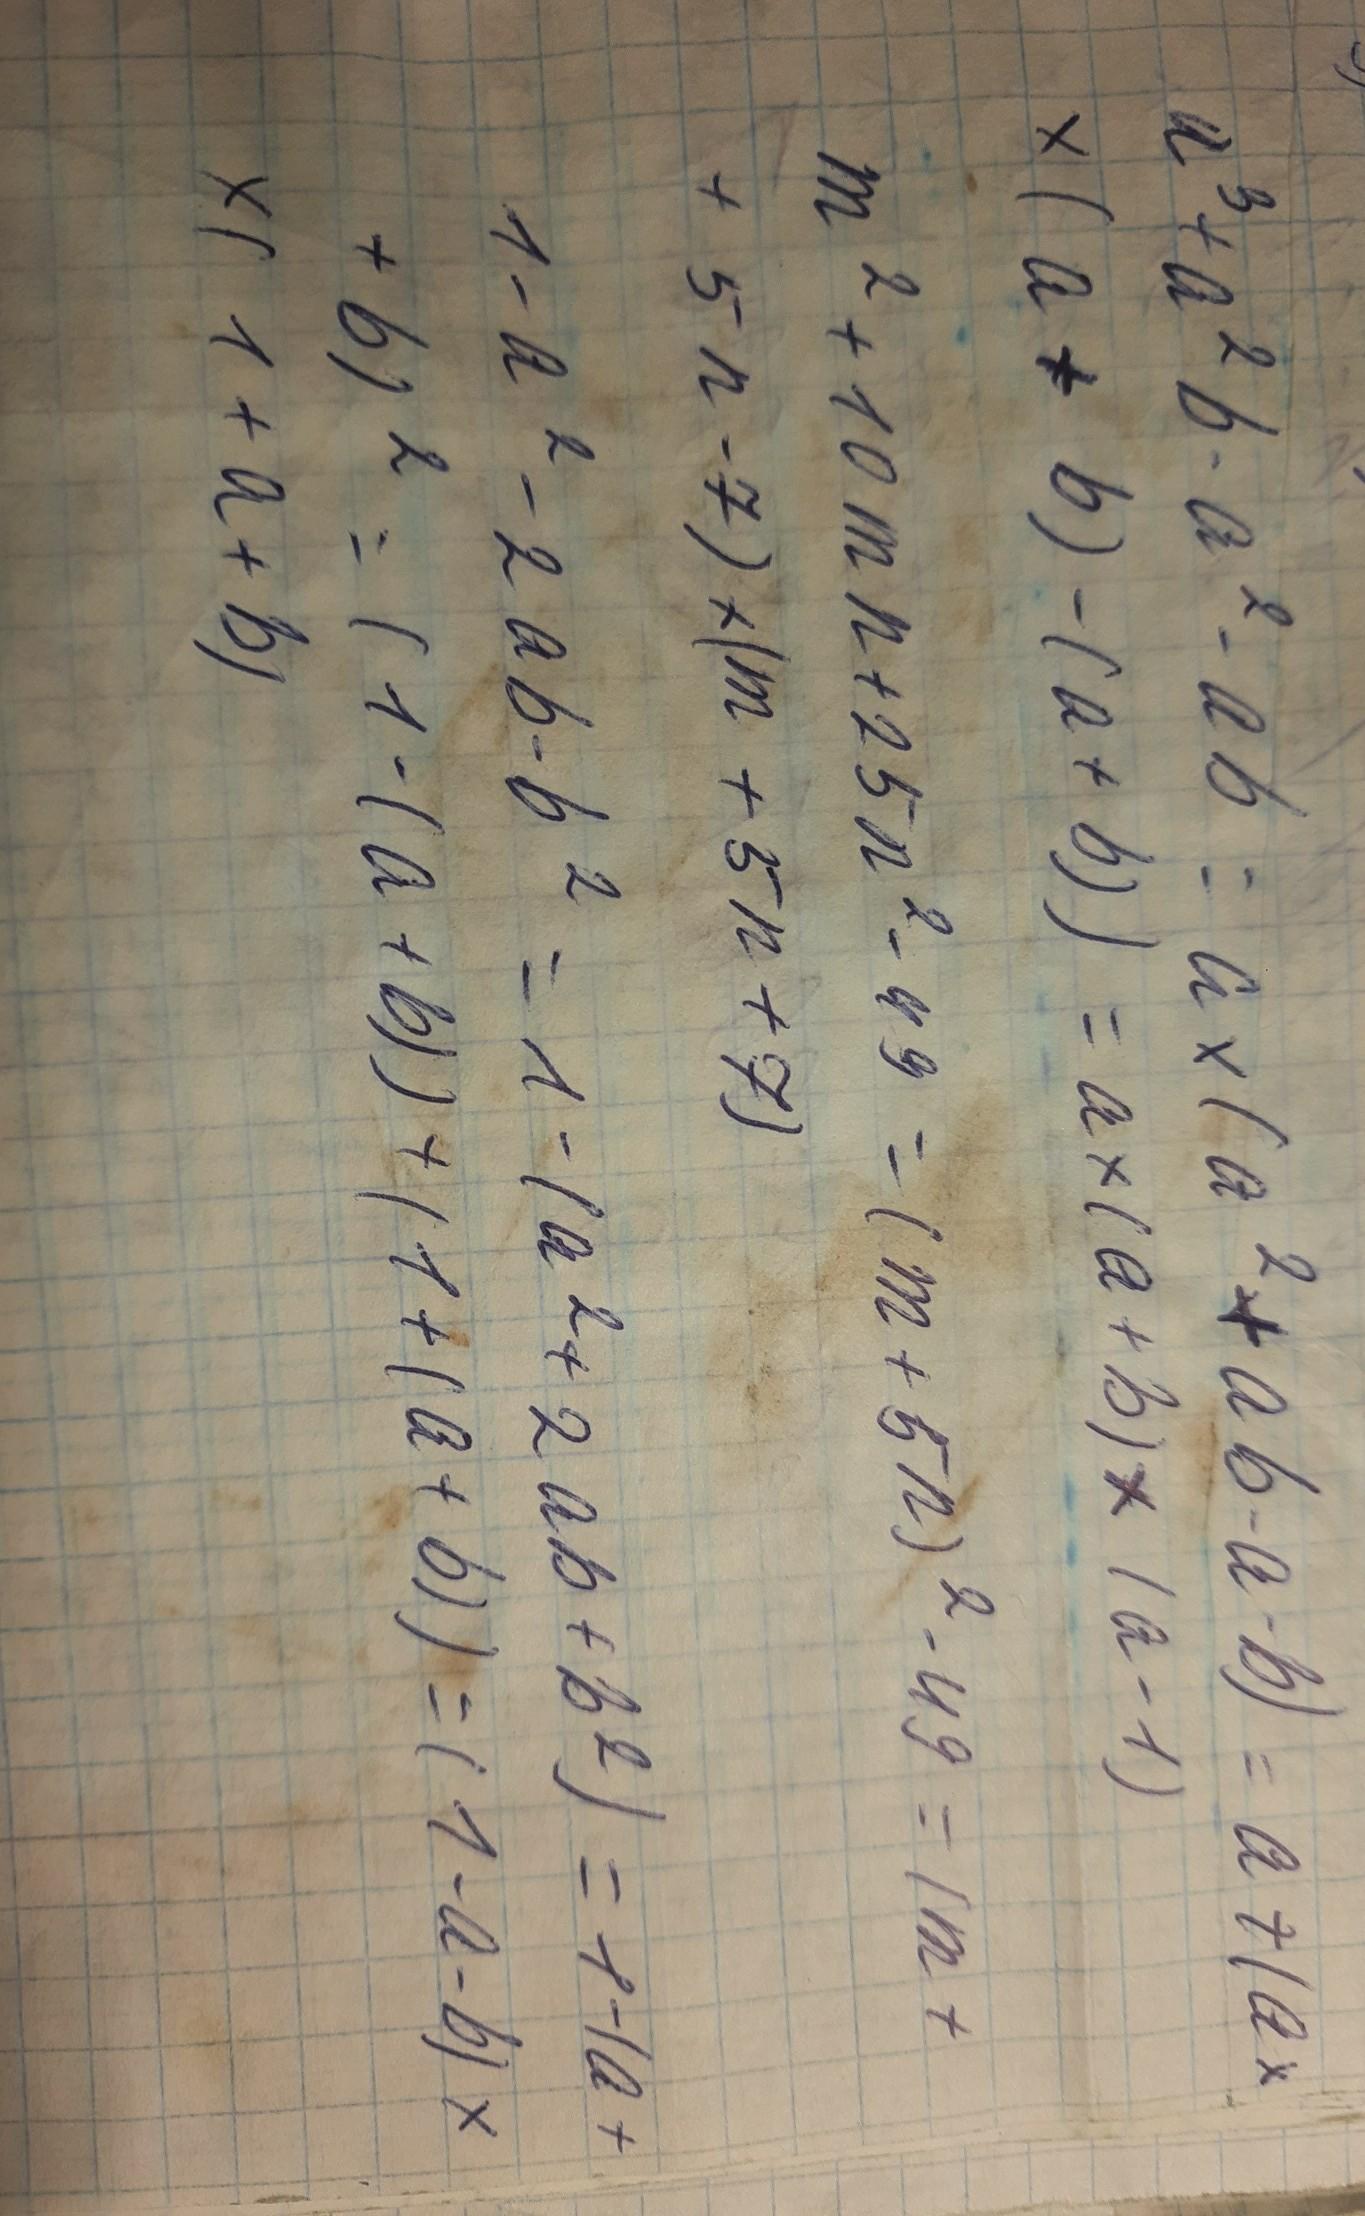 a³+a²b-a²-ab = a×(a²+ab-a-b) = a+(a×
×(a+b)-(a+b)) = a×(a+b)×(a-1)
m²+10mn+25n²-49 = (m+5n)²-49 = (m+
+5n-7)×(m+5n+7)
1-a²-2ab-b² = 1-(a²+2ab+b²) = 1-(a+
+b)² = (1-(a+b))+(1+(a+b) = (1-a-b)×
×(1+a+b)